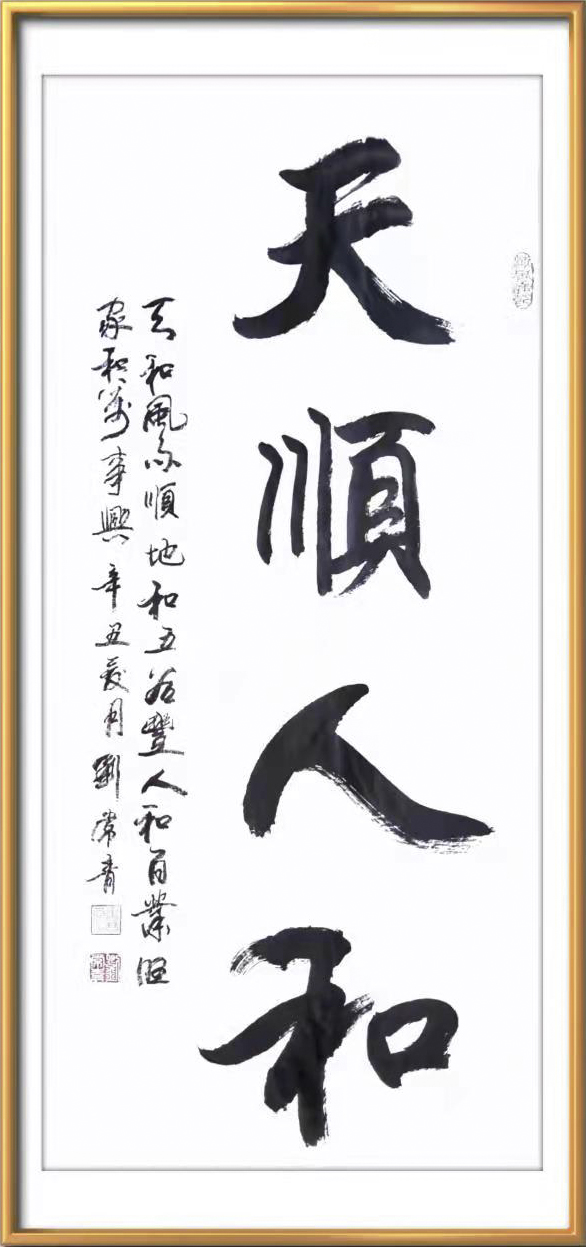 天順人和
天和風雨順地和五谷豐人和百業旺
家和萬事興辛丑夏月劉常青